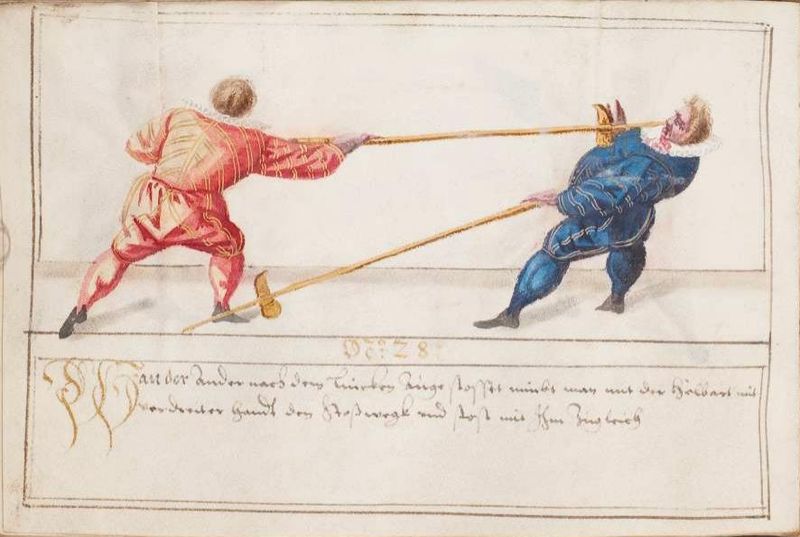 No: 28:
Wan der Ander nach dem Lincken Auge stosset nimbt man mit der Helbart mit
verdreiter handt den Stoß wegk und stost mit Ihm Zugleich